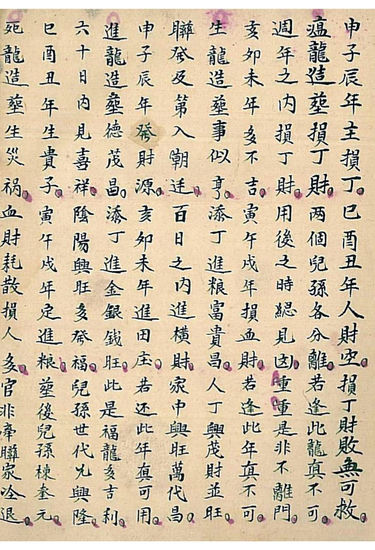 申子辰年主損丁。巳酉丑年人財空損丁財敗無可救。
瘟龍造塟損丁財。兩個兒孫各分離。若逢此龍真不可
週年之内損丁財。用後之時緦見凶。重重是非不離門。
亥夘未年多不吉。寅午戌年損血財。若逢此年真不可。
生龍造塟事似亨。添丁進粮富貴昌。人丁興茂財並旺
聯發及第入朝廷。百日之内進橫財。家中興旺萬代昌。
申子辰年發財源。亥夘未年進田庄。若还此年真可用。
進龍造塟德茂昌。添丁進金銀錢旺。此是福龍多吉利。
六十日内見喜祥。陰陽興旺多發福。兒孫世代尤興隆。
巳酉丑年生貴子。寅午戌年定進粮。塟後兒孫棟奎元。
死龍造塟生災禍。血財耗散損人多。官非牽聯家冷退。